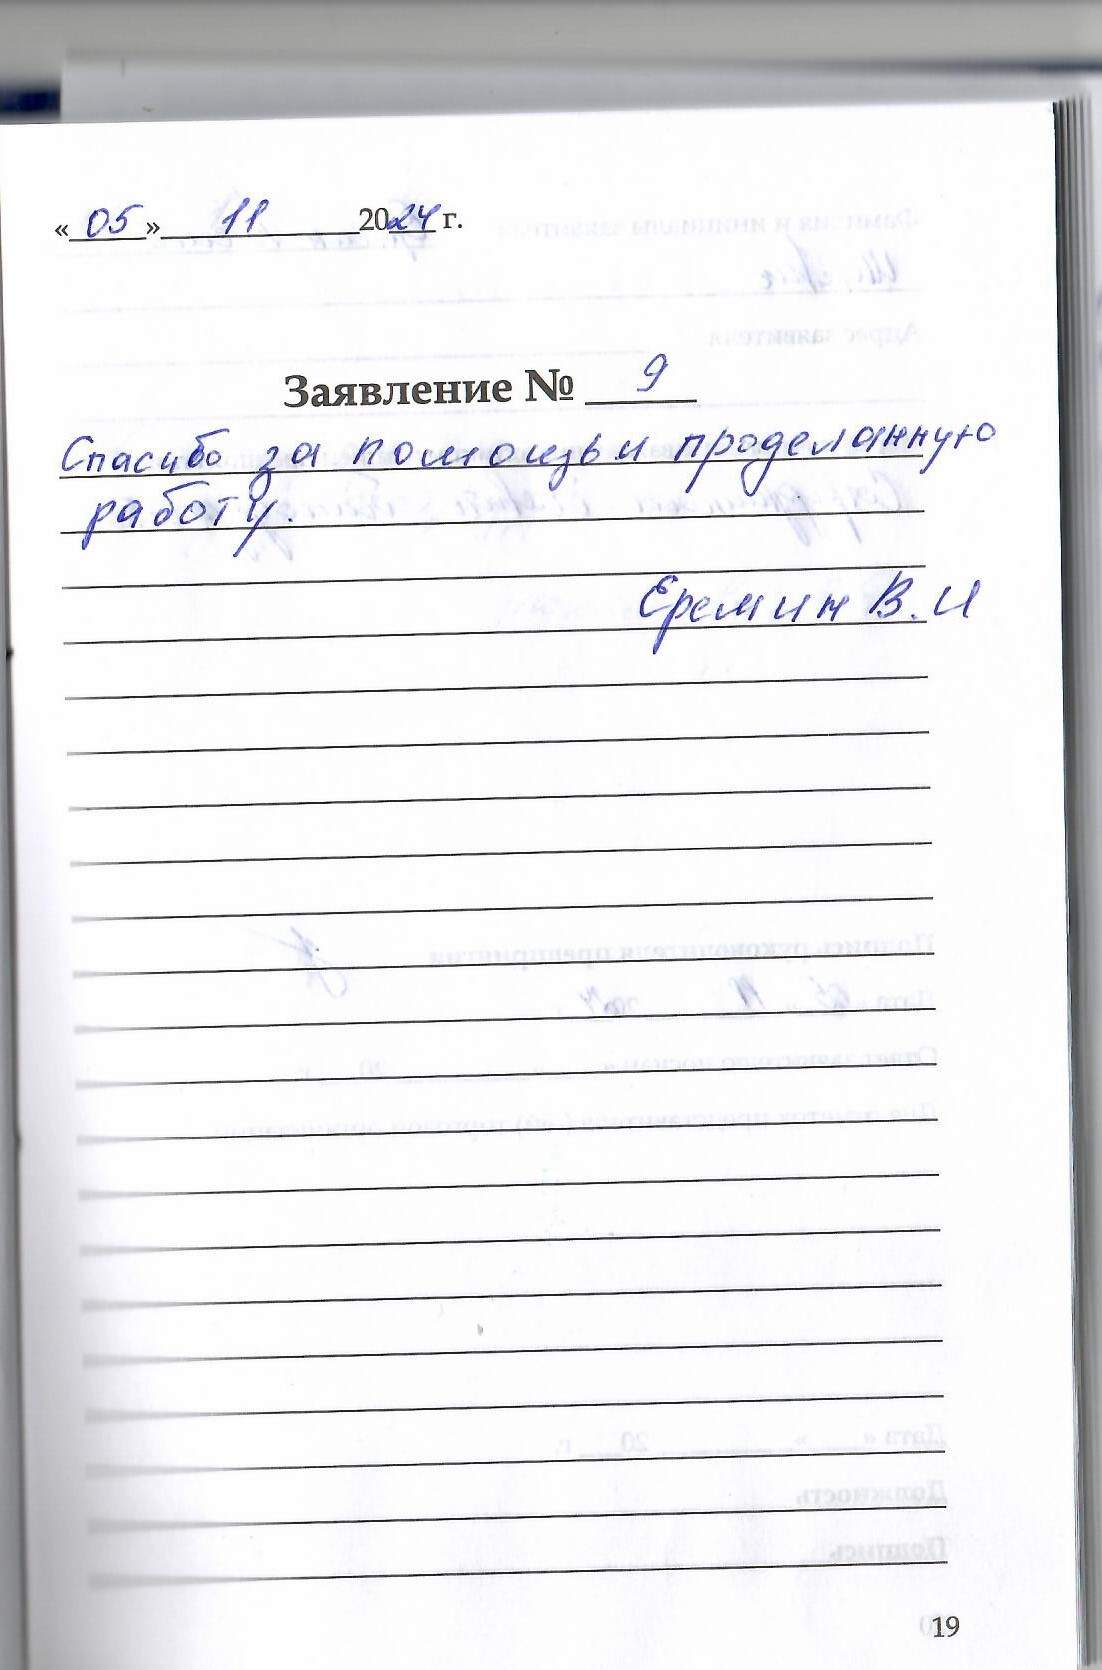 «05» 11 2024 г.
Заявление № 9
Спасибо за помощь и проделанную
работу.
Еремин В.И
19